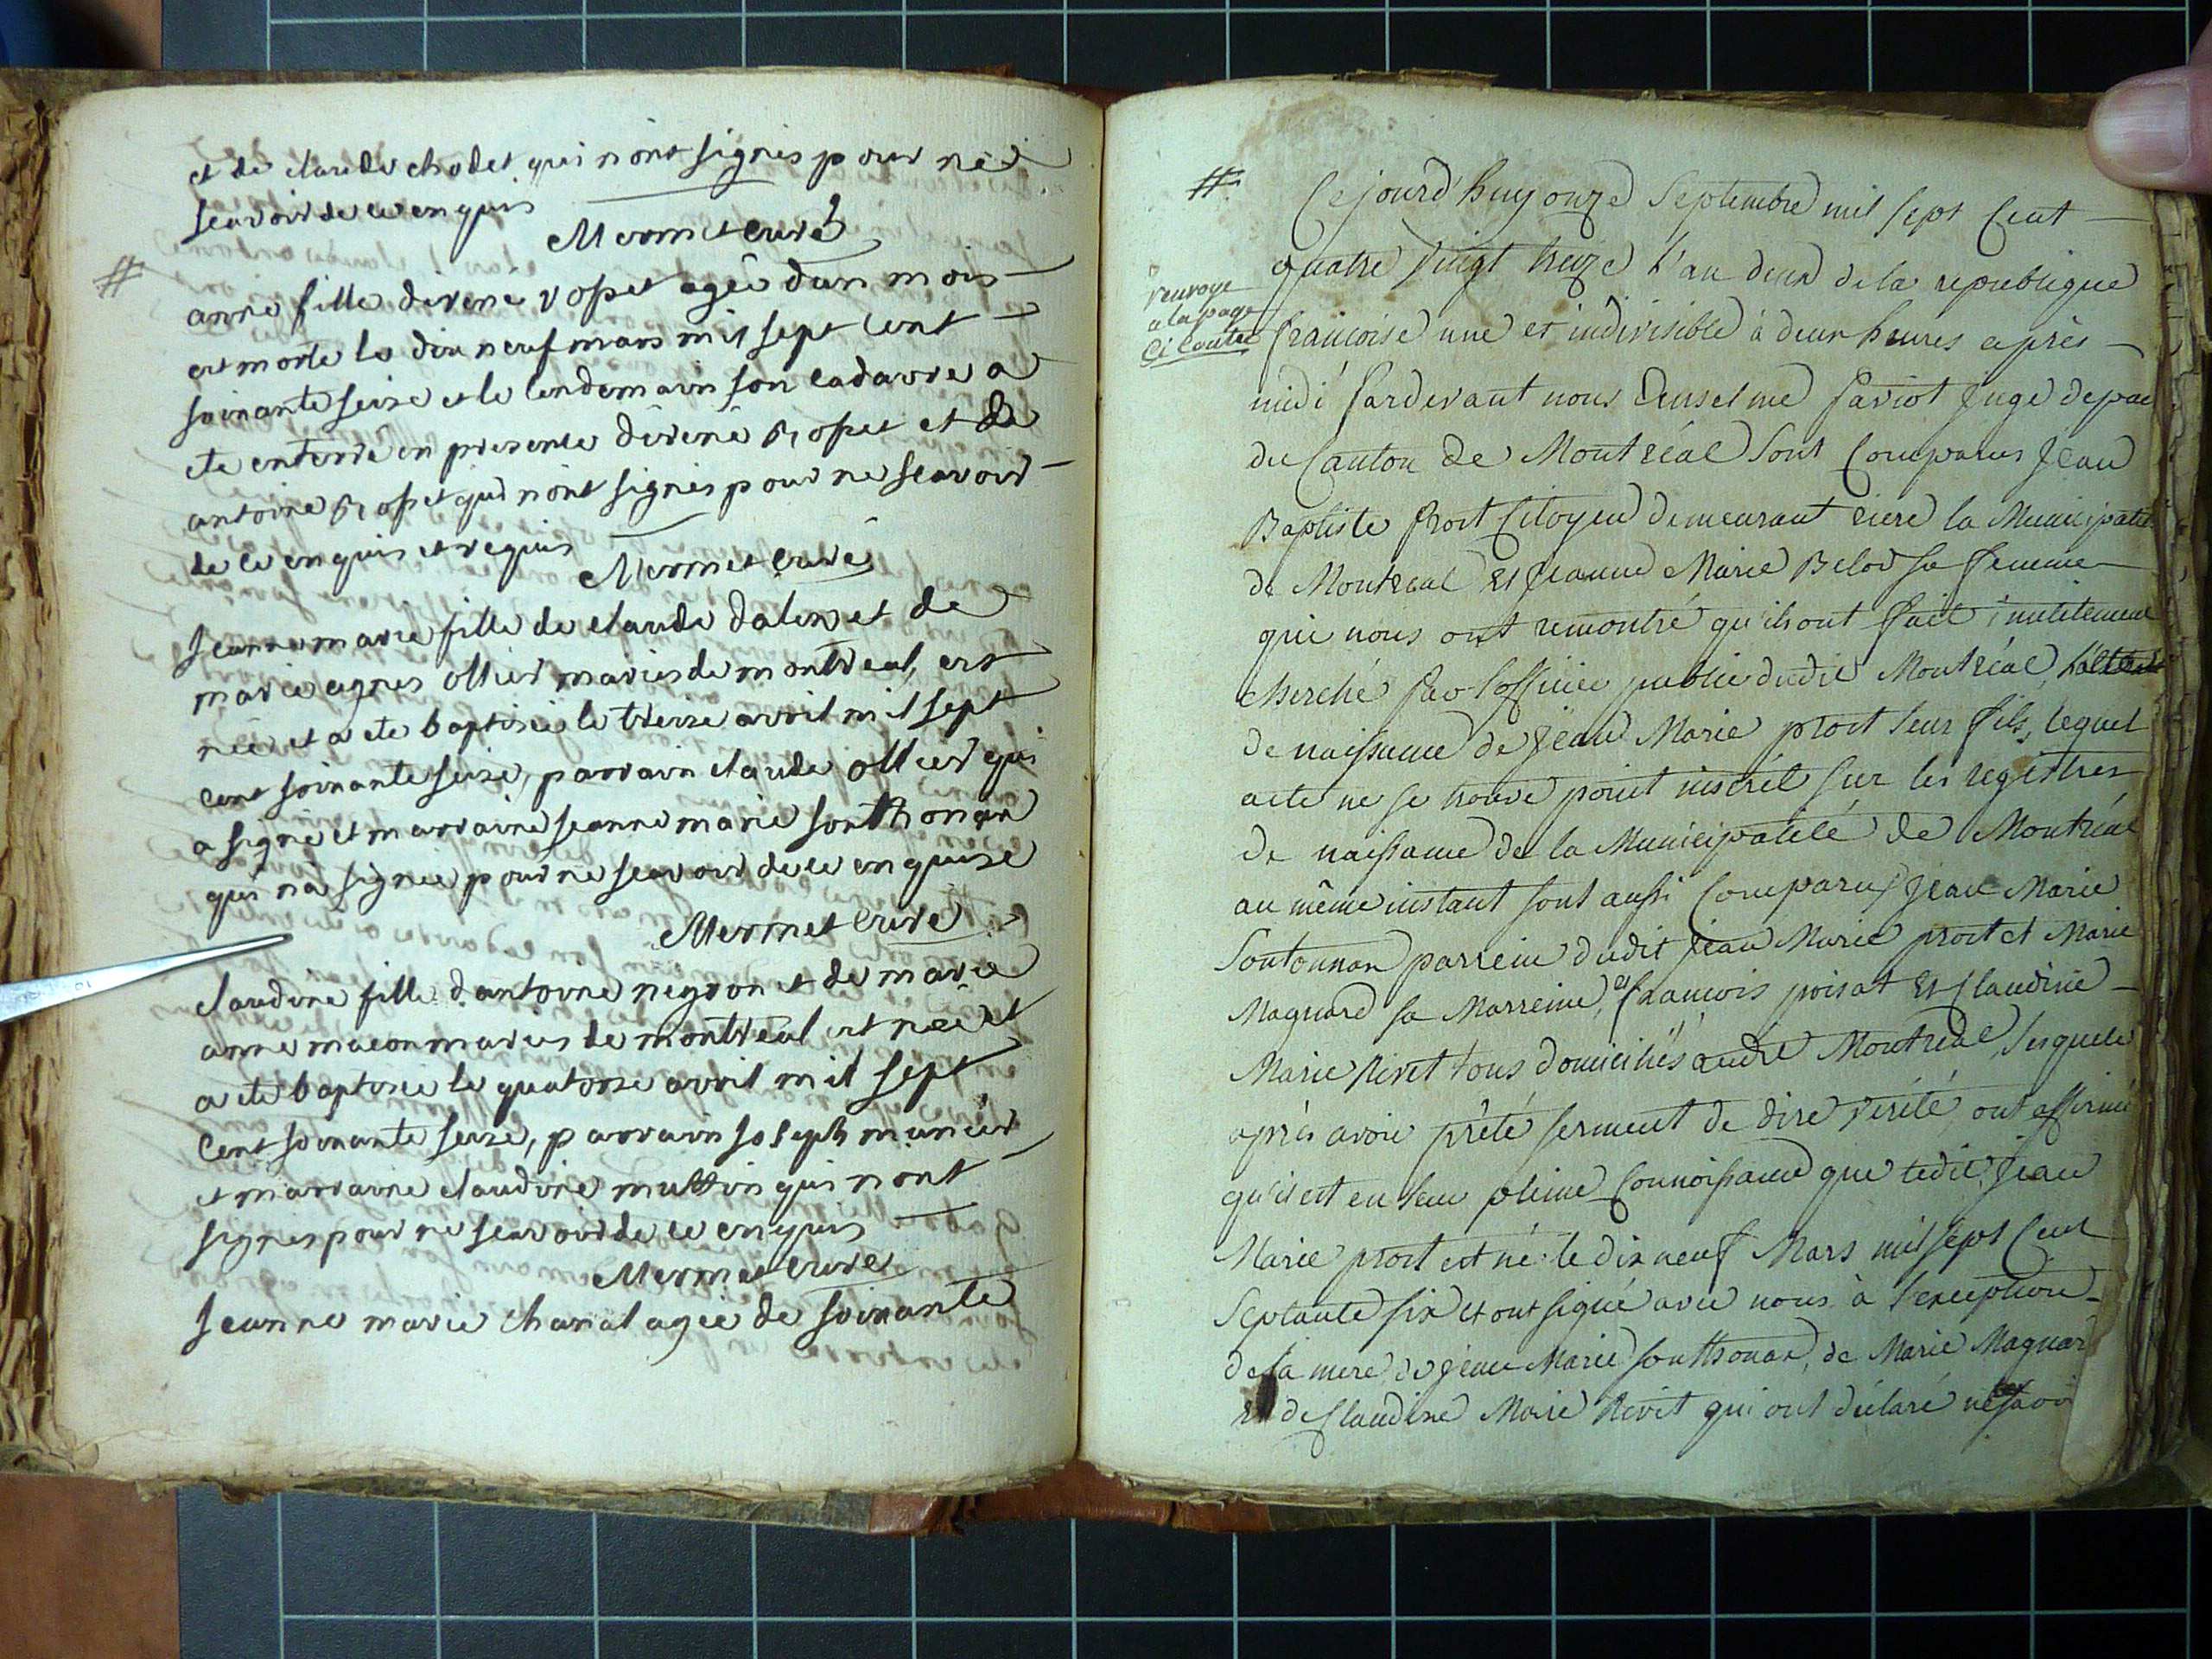 et de claude chodet qui n'ont signés pour ne
scavoir de ce enquis
Mermet curé
#
anne fille de rené ropet agée d'un mois
est morte le dix neuf mars mil sept cent
soixante seize et le lendemain son cadavre a
ete enterré en presence de rené Ropet et de
antoine Ropet qui n'ont signés pour ne scavoir
de ce enquis et requis
Mermet curé
Jeanne marie fille de claude dalex et de
marie agnes ollier mariés de montreal, est
née et a ete baptisée le treize avril mil sept
cent soixante seize, parrain claude ollier qui
a signé et marraine jeanne marie sonthonax
qui n'a signée pour ne scavoir de ce enquise
Mermet curé
claudine fille d'antoine negron et de marie
anne macon mariés de montreal est née et
a ete baptisée le quatorze avril mil sept
cent soixante seize, parrain joseph
et marraine claudine qui n'ont
signés pour ne scavoir de ce enquis
Mermet curé
Jeanne marie chanal agée de soixante
#
Cejourd'huy onze Septembre mil sept Cent
quatre Vingt treize l'an deux de la republique
renvoye
a la page
ci contre
francoise une et indivisible à deux heures après
midi pardevant nous Anselme Saviot Juge de paix
du Canton de Montréal Sont Comparus Jean
Baptiste Prost Citoyen demeurant riere la Municipalité
de Montreal Et Jeanne Marie Belod sa femme
qui nous ont remontré qu'ils ont fait inutilement
cherché par l'officier public dudit Montréal, l'acte
de naissance de Jean Marie prost leur fils, lequel
acte ne se trouve point inscrit sur les registres
de naissance de la Municipalité de Montréal
au même instant sont aussi Comparus Jean Marie
Sontonnax parrein dudit Jean Marie prost et Marie
Magnard sa Marreine, et francois poisat Et Claudine
Marie Rivet tous domiciliés audit Montreal, lesquels
après avoir prêté serment de dire vérité, ont affirmé
qu'il est en leur pleine Connoissance que ledit Jean
Marie prost est né le dix neuf Mars mil sept Cent
Septante six et ont signé avec nous à l'exception
de la mere, de Jean Marie Sonthonax, de Marie Magnar
Et de Claudine Marie Rivet qui ont déclaré ne savoir